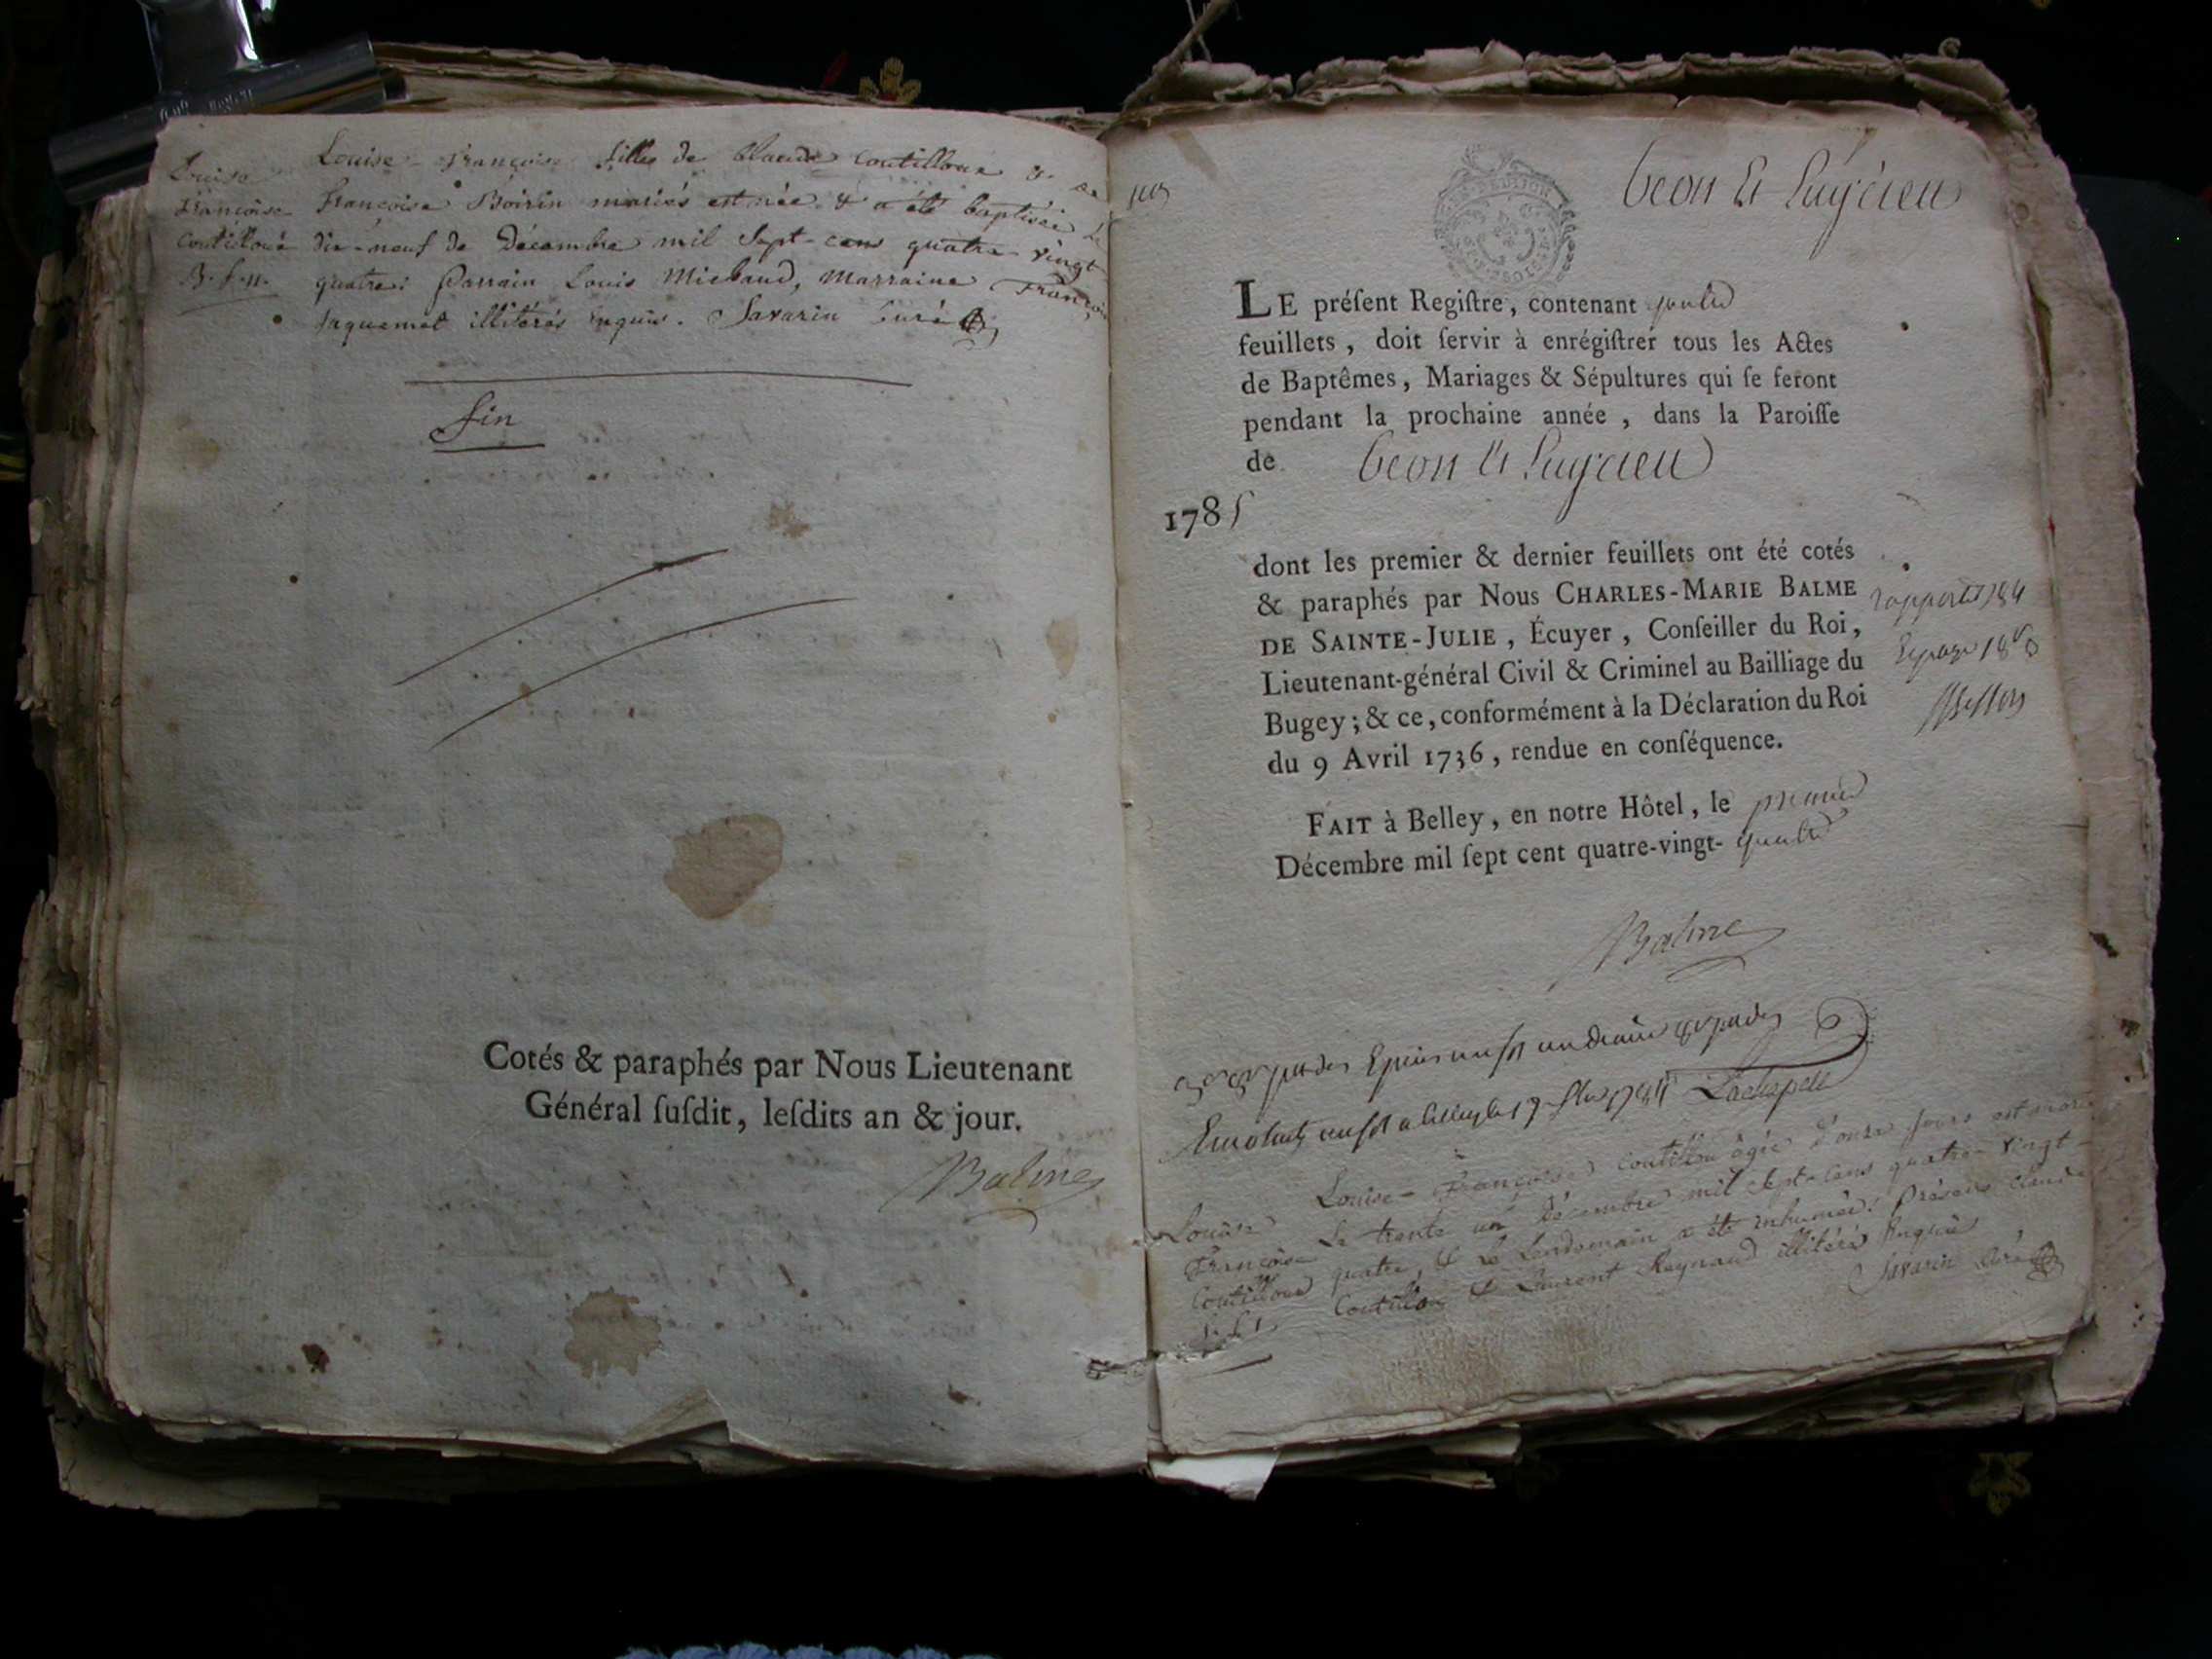 Louise
Françoise
B. f. n.
Louise-Françoise fille de Claude & de
Françoise Boirin mariés est née & a été baptisée le
dix-neuf de Décembre mil Sept-cens quatre-vingt
quatre: Parrain Louis Michaud, Marraine
Jaquemet illitérés enquis. Savarin Curé
fin
Cotés & paraphés par Nous Lieutenant
Général ſuſdit, leſdits an & jour.
Balme
Beon Et Luyrieu
LE préſent Regiſtre, contenant quatre
feuillets, doit ſervir à enrégiſtrer tous les Actes
de Baptêmes, Mariages & Sépultures qui ſe feront
pendant la prochaine année, dans la Paroiſſe
de Beon Et Luyrieu
1785
dont les premier & dernier feuillets ont été cotés
& paraphés par Nous CHARLES-MARIE BALME
DE SAINTE-JULIE, Écuyer, Conſeiller du Roi,
Lieutenant-général Civil & Criminel au Bailliage du
Bugey; & ce, conformément à la Déclaration du Roi
du 9 Avril 1736, rendue en conſéquence.
FAIT à Belley, en notre Hôtel, le premier
Décembre mil ſept cent quatre-vingt- quatre
Balme
Lachapelle
Louise
Françoise
Louise-Françoise âgée d'onze jours est
Le trente un Décembre mil Sept-cens quatre-vingt-
quatre, & le Lendemain a été inhumée. Présens Claude
& Laurent Reynaud illitérés Enquis
Savarin Curé